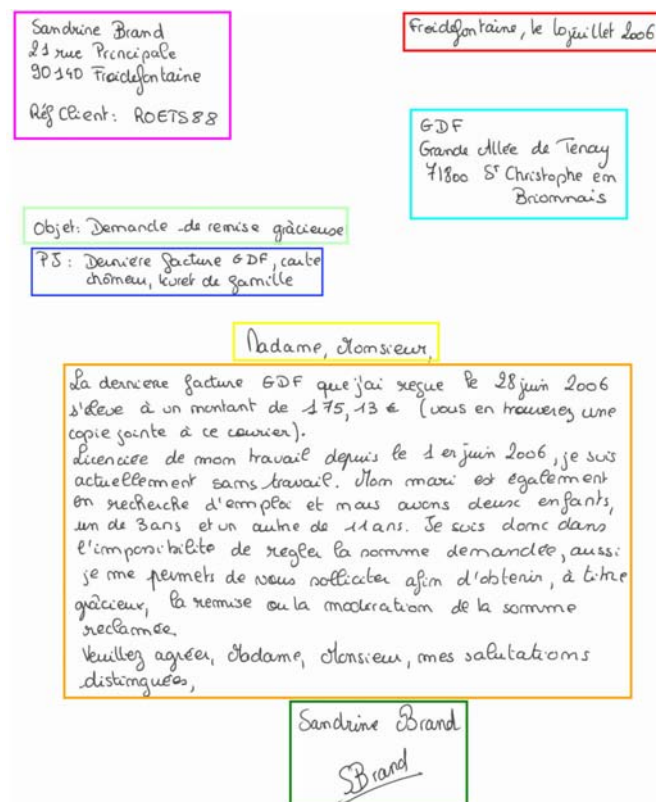 Sandrine Brand
21 rue Principale
90140 Froidefontaine
Réf Client: ROETS88
Froidefontaine, le 10 juillet 2006
GDF
Grande Allée de Tenay
71800 St Christophe en
Brionnais
Objet: Demande de remise gràcieuse
PJ: Dernière facture GDF, carte
chômeur, livret de famille
Madame, Monsieur,
La derniere facture GDF que j'ai reçue le 28 juin 2006
s'éleve à un montant de 175,13 € (vous en trouverez une
copie jointe à ce courier).
Licenciée de mon travail depuis le 1er juin 2006, je suis
actuellement sans travail. Mon mari est également
en recherche d'emploi et nous avons deux enfants,
un de 3 ans et un autre de 11 ans. Je suis donc dans
l'impossibilité de regler la somme demandée, aussi
je me permets de vous solliciter afin d'obtenir, à titre
gràcieux, la remise ou la moderation de la somme
reclamée.
Veuillez agréer, Madame, Monsieur, mes salutations
distinguées,
Sandrine Brand
SBrand